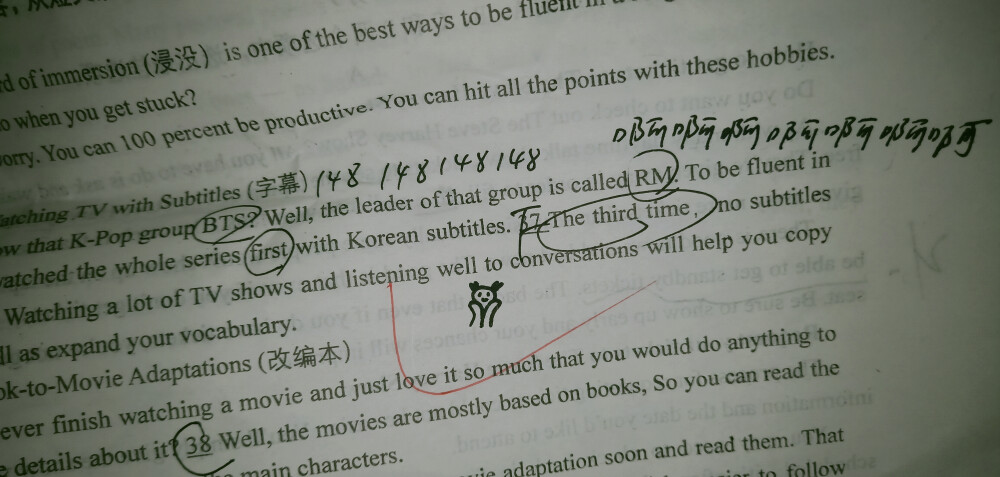 d of immersion (浸没) is one of the best ways to be fluent in
o when you get stuck?
worry. You can 100 percent be productive. You can hit all the points with these hobbies.
atching TV with Subtitles (字幕) 148 148 148 148
ow that K-Pop group BTS? Well, the leader of that group is called RM. To be fluent in
watched the whole series first with Korean subtitles. 37 The third time, no subtitles
Watching a lot of TV shows and listening well to conversations will help you copy
ll as expand your vocabulary.
ok-to-Movie Adaptations (改编本)
ever finish watching a movie and just love it so much that you would do anything to
e details about it? 38 Well, the movies are mostly based on books, So you can read the
main characters.
vie adaptation soon and read them. That
to follow